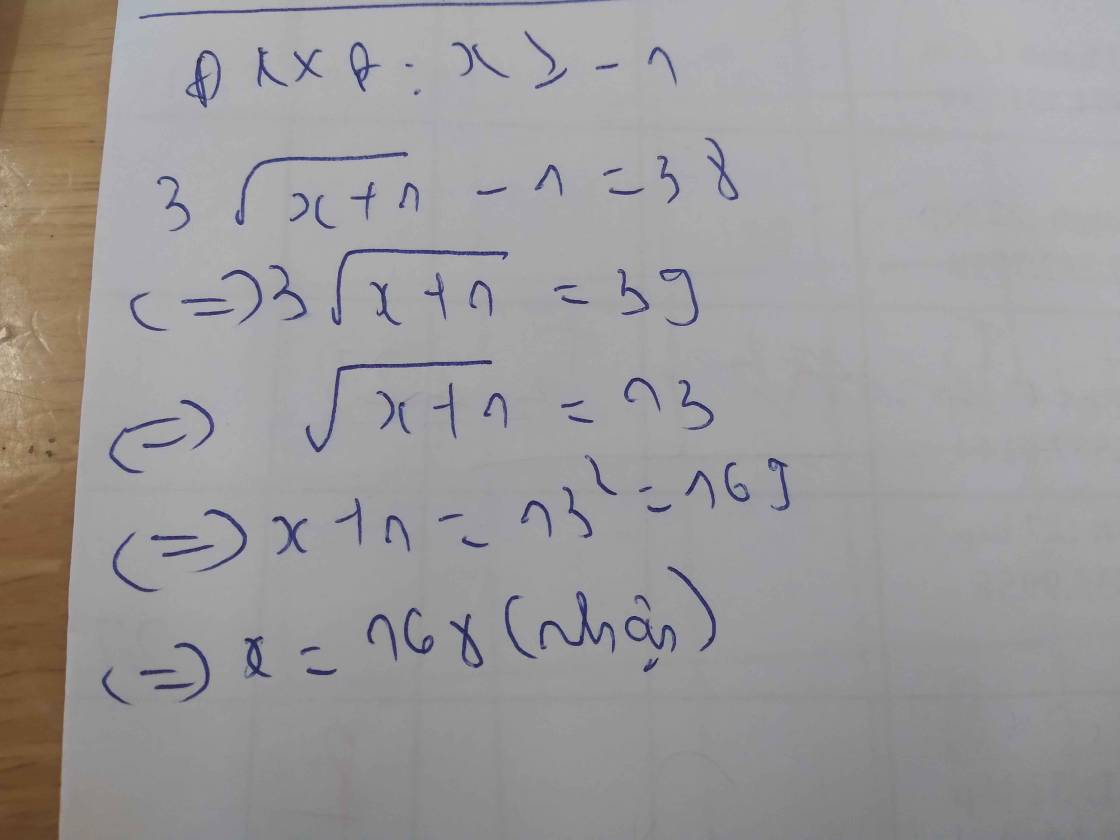 ĐKXĐ: x ≥ -1
3√(x+1) - 1 = 38
(=) 3√(x+1) = 39
(=) √(x+1) = 13
(=) x+1 = 13² = 169
(=) x = 168 (nhận)